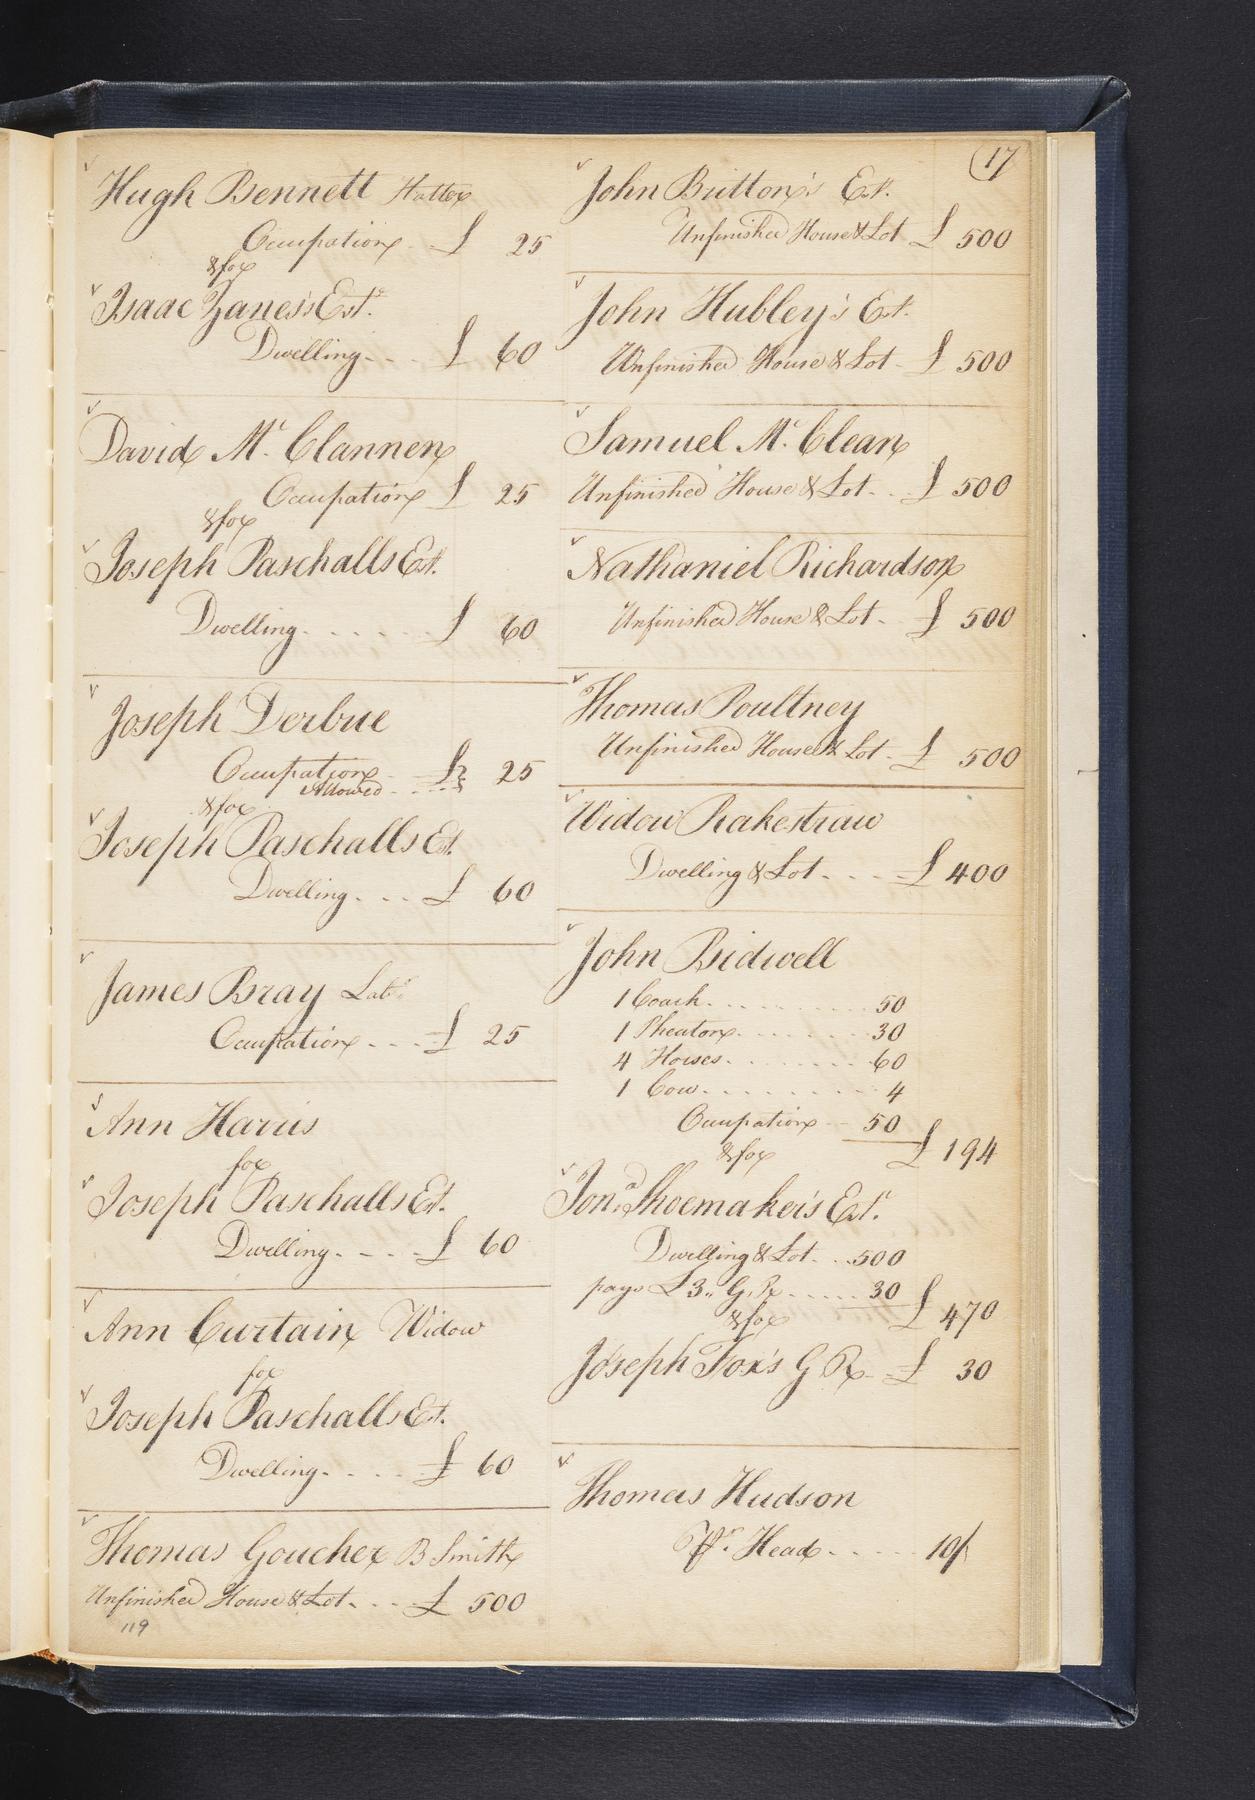 Hugh Bennett Hatter
Occupation - £ 25
& for
Isaac Zanes's Est.
Dwelling - - - £ 60
David Mc. Clannen
Occupation £ 25
& for
Joseph Paschalls Est.
Dwelling - - - - - £ 60
Joseph Derbue
Occupation - £ 25
Allowed - - - -
& for
Joseph Paschalls Est.
Dwelling - - - £ 60
James Bray Labr.
Occupation - - - £ 25
Ann Harris
for
Joseph Paschalls Est.
Dwelling - - - £ 60
Ann Curtain Widow
for
Joseph Paschalls Est.
Dwelling - - - - £ 60
Thomas Goucher B Smith
Unfinished House & Lot - - - £ 500
119
(17
John Britton's Est.
Unfinished House & Lot £ 500
John Hubley's Est.
Unfinished House & Lot - £ 500
Samuel Mc. Clean
Unfinished House & Lot - - £ 500
Nathaniel Richardson
Unfinished House & Lot - £ 500
Thomas Poultney
Unfinished House & Lot - £ 500
Widow Rakestraw
Dwelling & Lot - - - £ 400
John Bidwell
1 Coach - - - - - 50
1 Pheaton - - - - - 30
4 Horses - - - - - 60
1 Cow - - - - - 4
Occupation - - 50
£ 194
& for
Jona. Shoemaker's Est.
Dwelling & Lot - - 500
pays £ 3 ,, G. R - - - - 30
£ 470
& for
Joseph Fox's G R - £ 30
Thomas Hudson
Pr. Head - - - - - 10/